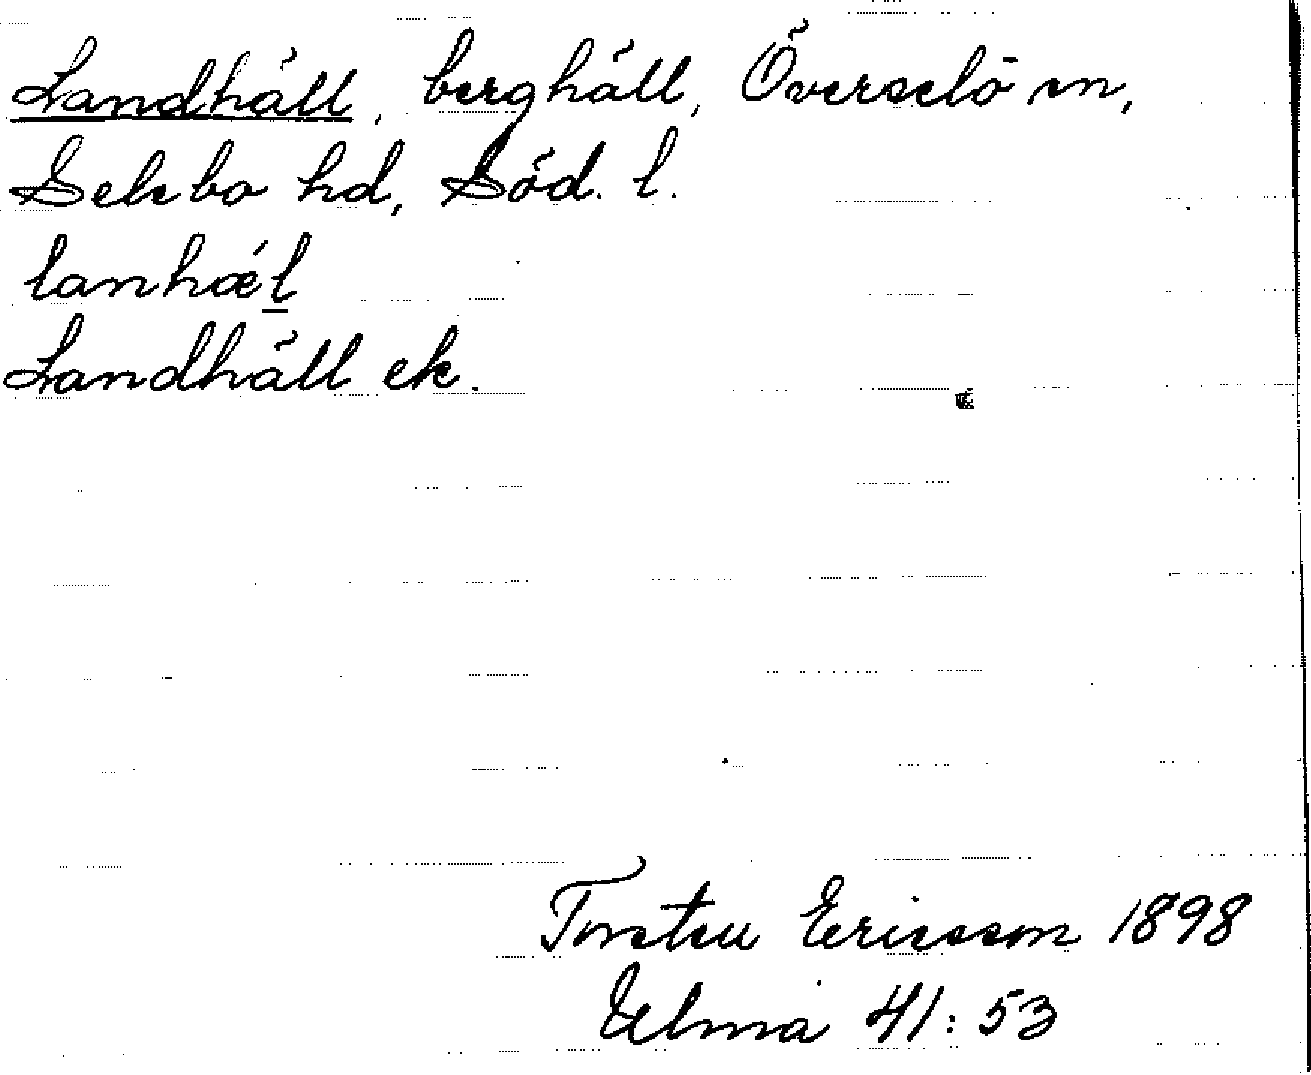 Landhäll, berghäll, Överselö sn,
Selebo hd, Söd. l.
lanhæ´l
Landhäll ek.
Torsten Ericsson 1898
Ulma 41:53